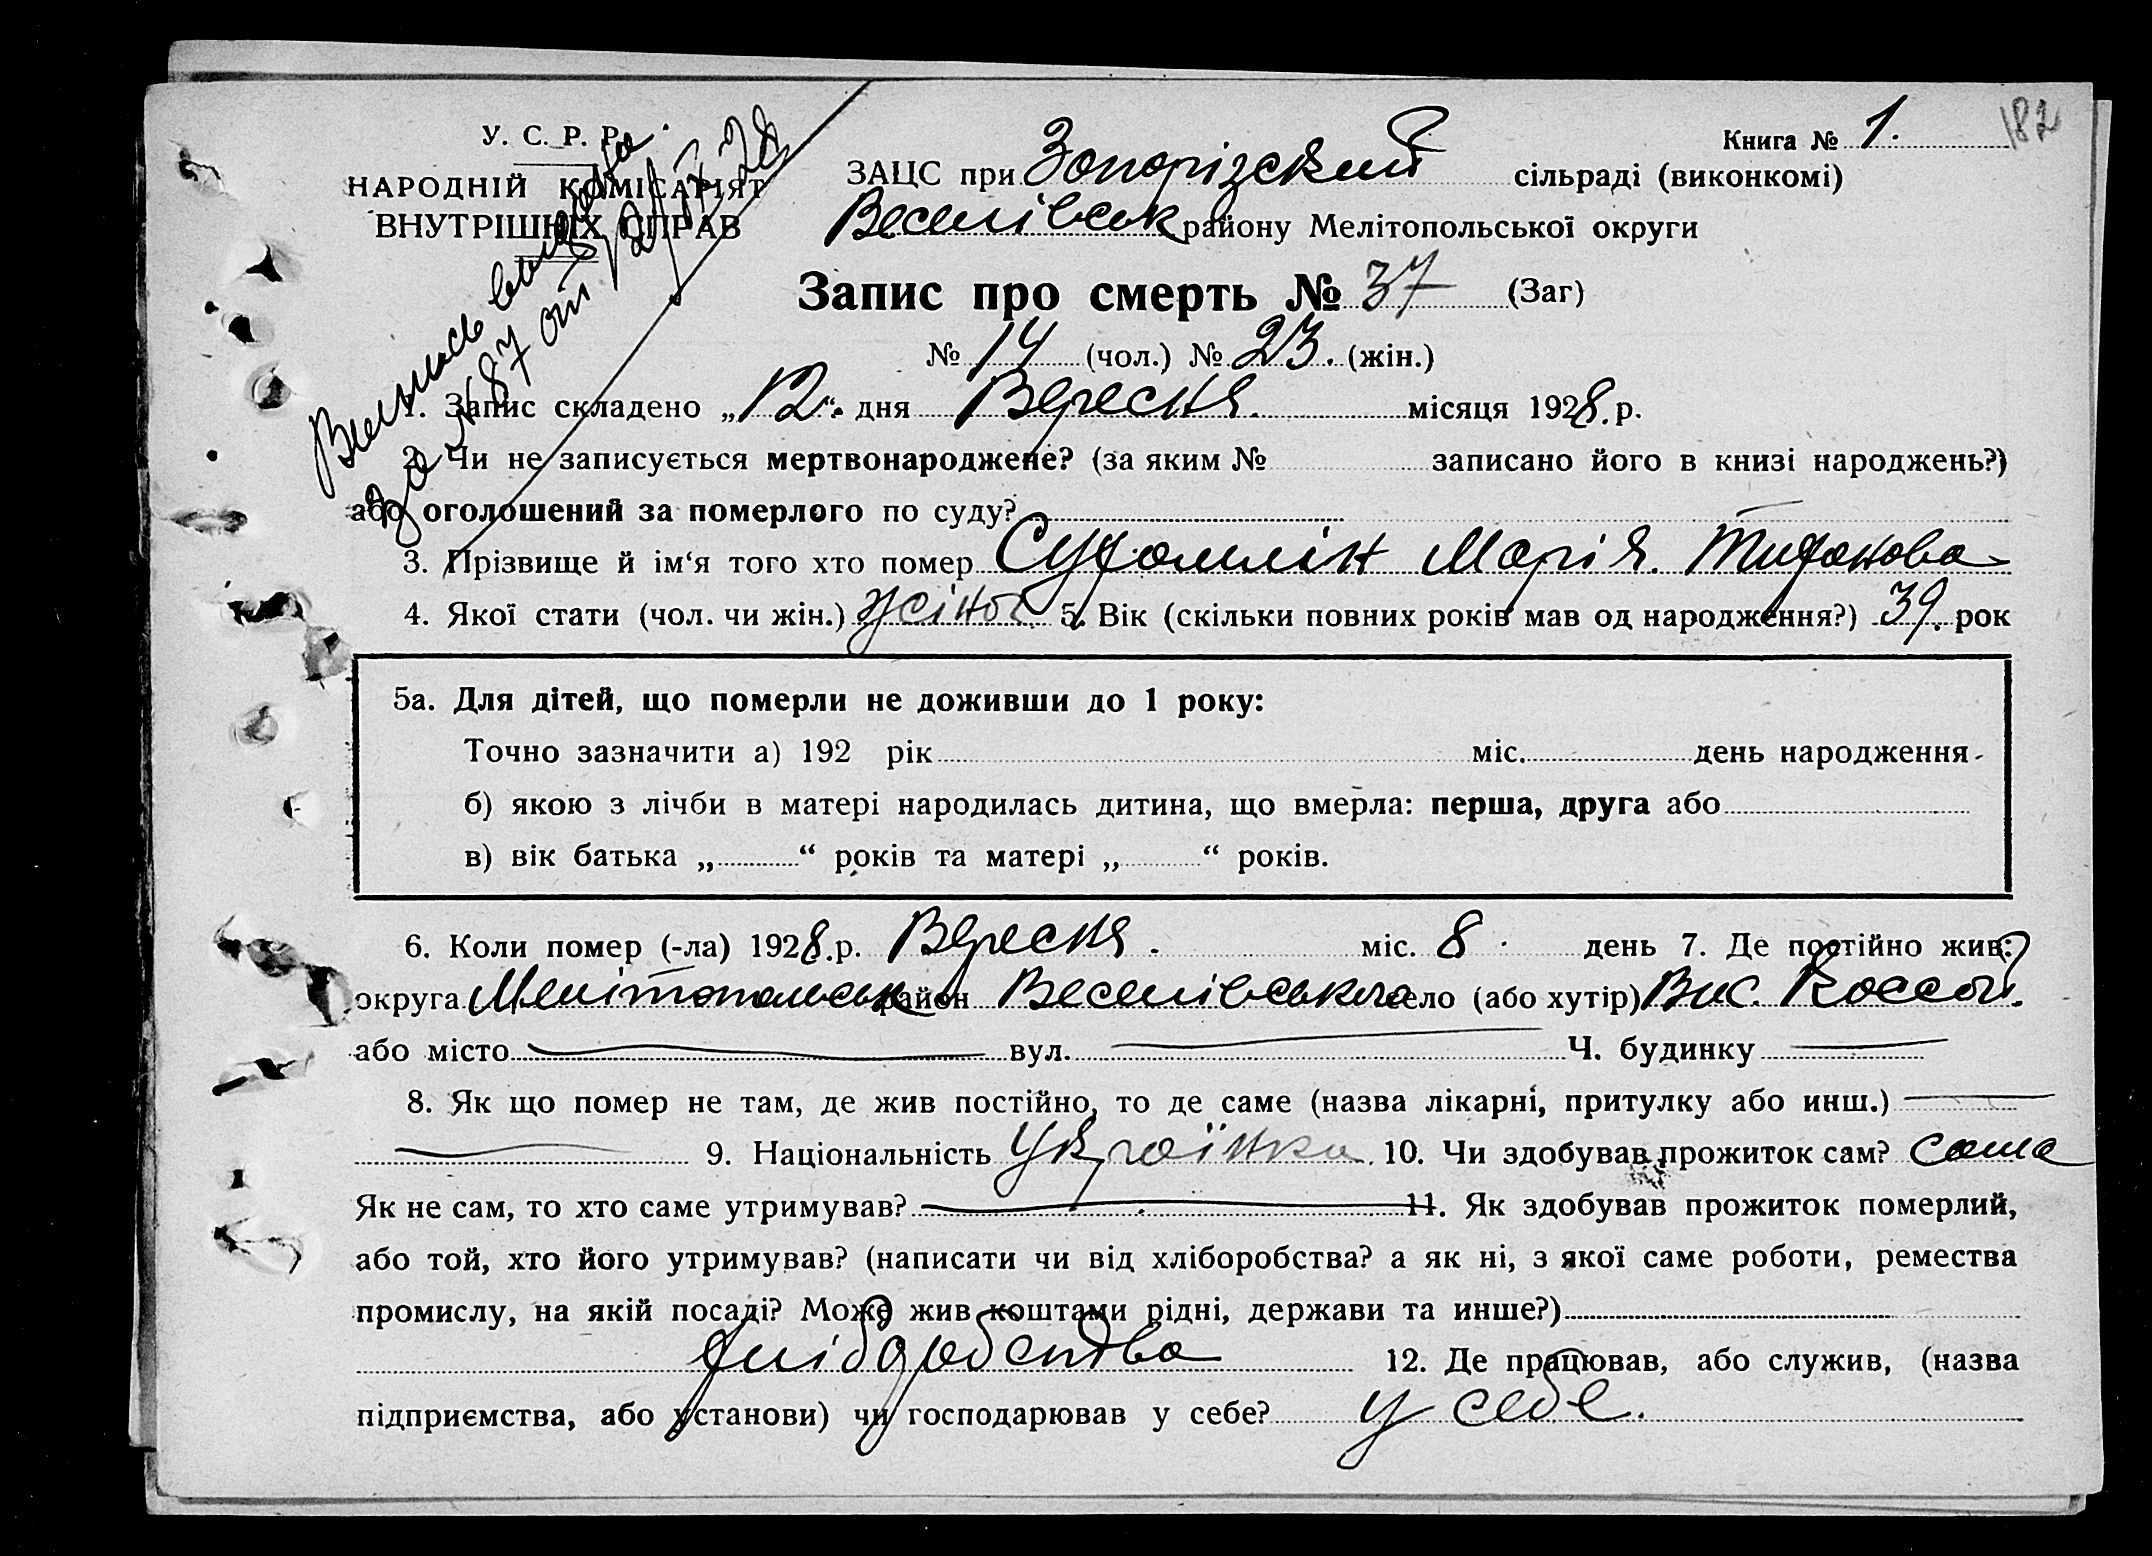 182
У. С. Р. Р.
НАРОДНІЙ КОМІСАРІЯТ
ВНУТРІШНІХ СПРАВ
Выпись выдана
за № 87 от 12/IX-28
Книга № 1.
ЗАЦС при Запорізский сільраді (виконкомі)
Веселівськ району Мелітопольської округи
Запис про смерть № 37 (Заг)
№ 14 (чол.) № 23. (жін.)
1. Запис складено „12“ дня Вересня. місяця 1928. р.
2. Чи не записується мертвонароджене? (за яким № записано його в книзі народжень?)
або оголошений за померлого по суду?
3. Прізвище й ім‘я того хто помер Сухомлін Марія
4. Якої стати (чол. чи жін.) жіноч. 5. Вік (скільки повних років мав од народження?) 39. рок
5а. Для дітей, що померли не доживши до 1 року:
Точно зазначити а) 192 рік міс. день народження
б) якою з лічби в матері народилась дитина, що вмерла: перша, друга або
в) вік батька „ “ років та матері „ “ років.
6. Коли помер (-ла) 1928. р. Вересня. міс. 8 день 7. Де постійно жив:
округа Мелітопольськ район Веселівського село (або хутір) Вис.
або місто вул. Ч. будинку
8. Як що помер не там, де жив постійно, то де саме (назва лікарні, притулку або инш.)
9. Національність Українка. 10. Чи здобував прожиток сам? сама
Як не сам, то хто саме утримував? 11. Як здобував прожиток померлий,
або той, хто його утримував? (написати чи від хліборобства? а як ні, з якої саме роботи, ремества
промислу, на якій посаді? Може жив коштами рідні, держави та инше?)
хліборобство 12. Де працював, або служив, (назва
підприємства, або установи) чи господарював у себе? у себе.